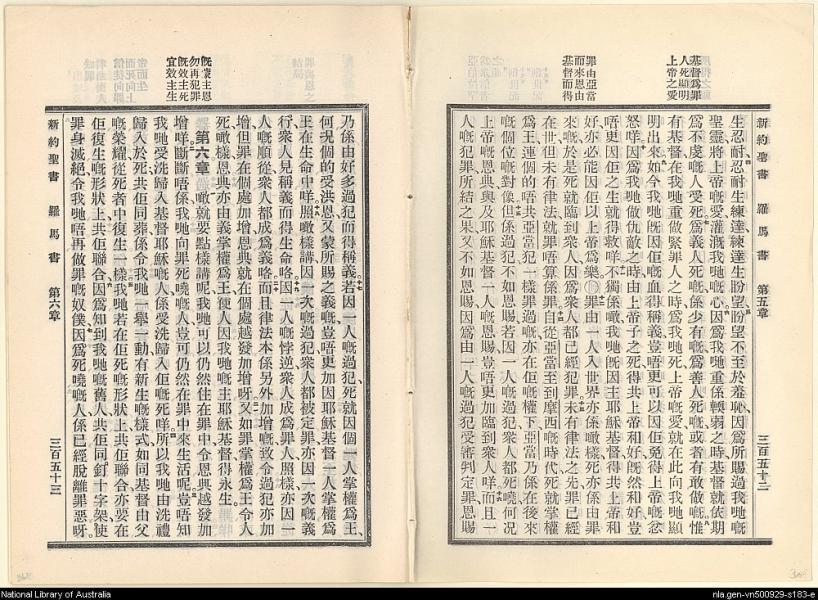 新約聖書 羅馬書 第五章 三百五十二
基督爲罪
人死顯明
上帝之愛
罪由亞當
而來恩由
基督而得
生忍耐忍耐生練達練達生盼望盼望不至於羞恥因爲所賜過我哋嘅
聖靈將上帝嘅愛灌溉我哋嘅心因爲我哋重係輭弱之時基督就依期
爲不虔嘅人受死爲義人死嘅係少有嘅爲善人死嘅或者有敢做嘅惟
有基督在我哋重做緊罪人之時爲我哋死上帝嘅愛就在此向我哋顯
明出來如今我哋既因佢嘅血得稱義豈唔更可以因佢免得上帝嘅忿
怒咩因爲我哋做仇敵之時由上帝子之死得共上帝和好既然和好豈
唔更因佢之生就得救咩不獨係噉我哋既因主耶穌基督得共上帝和
好亦必能因佢以上帝爲樂○罪由一人入世界亦係噉樣死亦係由罪
來嘅於是死就臨到衆人因爲衆人都已經犯罪未有律法之先罪已經
在世但未有律法就罪唔算係罪自從亞當至到摩西嘅時代死就掌權
爲王連個的唔共亞當犯一樣罪過嘅亦在佢嘅權下亞當乃係在後來
嘅個位嘅對像但係過犯不如恩賜若因一人嘅過犯衆人都死嘵何况
上帝嘅恩典與及耶穌基督一人嘅恩賜豈唔更加臨到衆人咩而且一
人嘅犯罪所結之果又不如恩賜因爲由一人嘅過犯受審判定罪恩賜
既蒙主恩
勿再犯罪
既效主死
宜效主生
乃係由好多過犯而得稱義若因一人嘅過犯死就因個一人掌權爲王
何况個的受洪恩又蒙所賜之義嘅豈唔更加因耶穌基督一人掌權爲
王在生命中咩照噉樣講因一次嘅過犯衆人都被定罪亦因一次嘅義
行衆人見稱義而得生命咯因一人嘅悖逆衆人成爲罪人照樣亦因一
人嘅順從衆人都成爲義咯而且律法本係另外加增嘅致令過犯亦加
增但罪在個處加增恩典就在個處越發加增呀又如罪掌權爲王令人
死噉樣恩典亦由義掌權爲王使人因我哋嘅主耶穌基督得永生
第六章 噉就要點樣講呢我哋可以仍然住在罪中令恩典越發加
增咩斷斷唔係我哋向罪死嘵嘅人豈可仍然在罪中來生活呢豈唔知
我哋受洗歸入基督耶穌嘅人係受洗歸入佢嘅死咩所以我哋由洗禮
歸入於死共佢同葬係令我哋一舉一動有新生嘅樣式如同基督由父
嘅榮耀從死者中復生一樣我哋若在佢死嘅形狀上共佢聯合亦要在
佢復生嘅形狀上共佢聯合因爲知到我哋嘅舊人共佢同釘十字架使
罪身滅絕令我哋唔再做罪嘅奴僕因爲死嘵嘅人係已經脫離罪惡呀
新約聖書 羅馬書 第六章 三百五十三
National Library of Australia
nla.gen-vn500929-s183-e